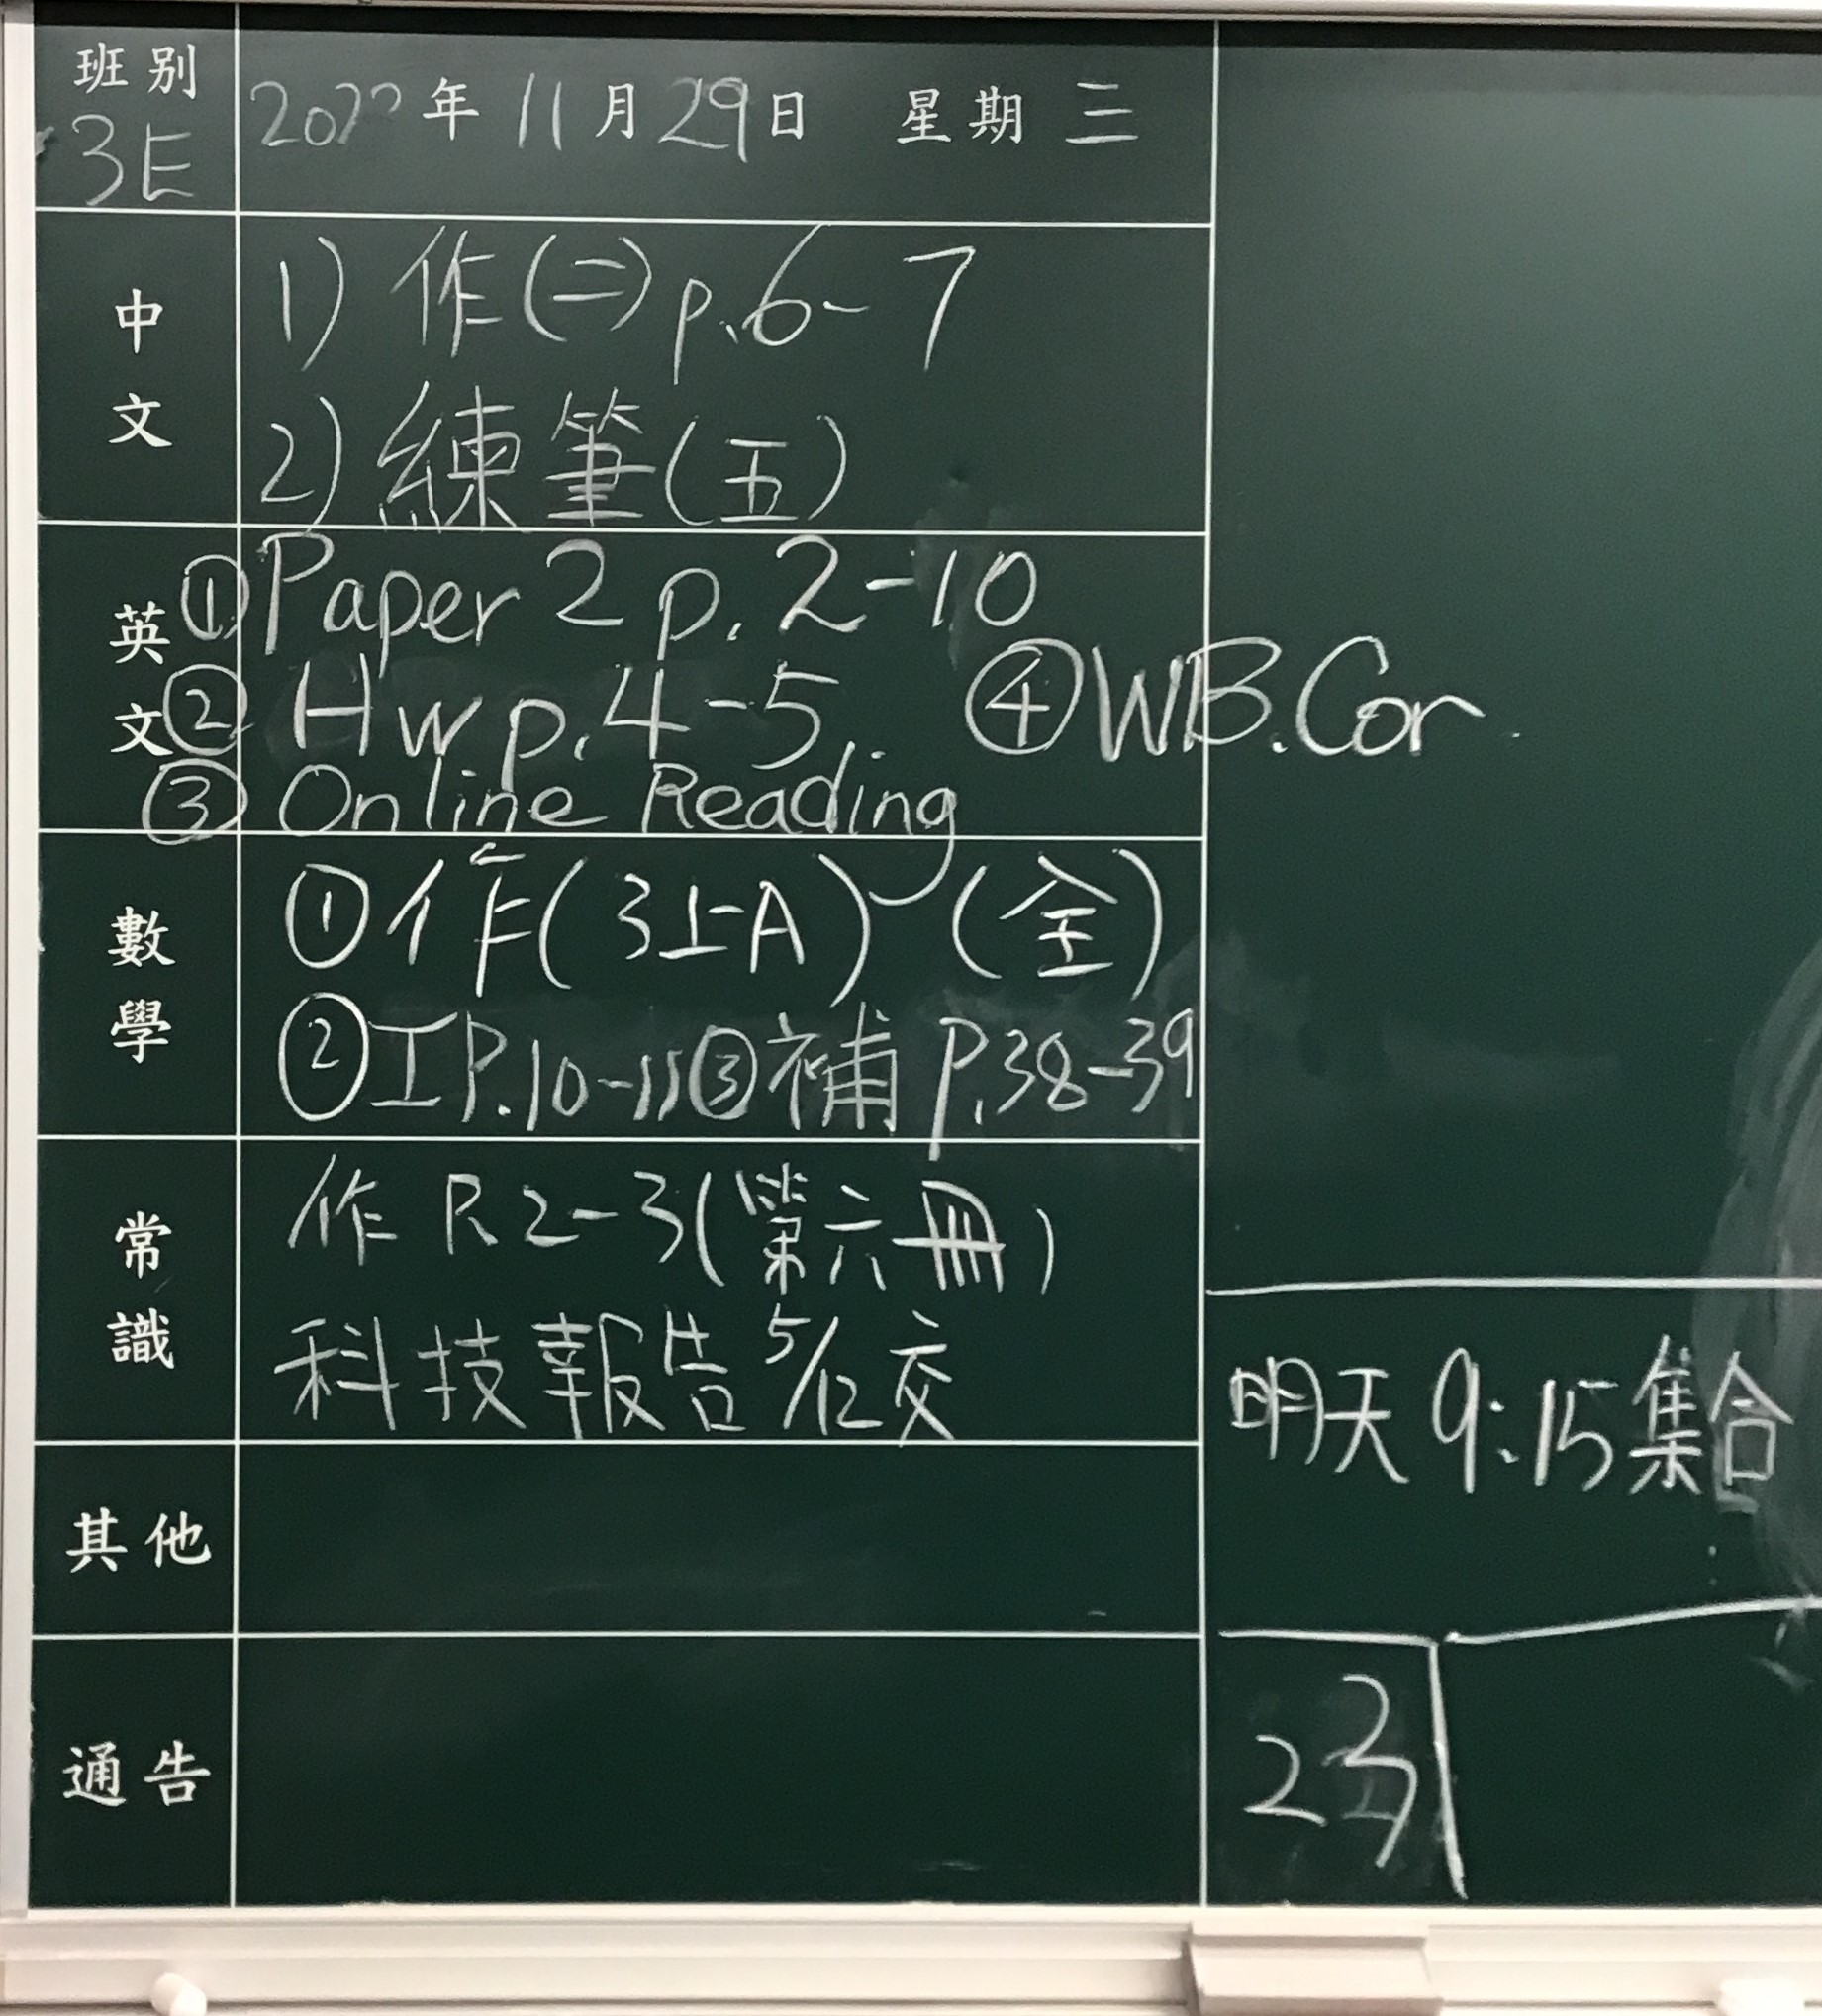 班別 3E
2022年 11月 29日 星期 三
中文
1) 作(二) p.6-7
2) 練筆(五)
英文
① Paper 2 p. 2-10
② Hw p.4-5 ④ WB.Cor
③ Online Reading
數學
① 作(3上A) (全)
② 工 P.10-15 ③ 補 P.38-39
常識
作 R2-3(第六冊)
科技報告 5/12交
其他
通告
明天 9:15集合
23